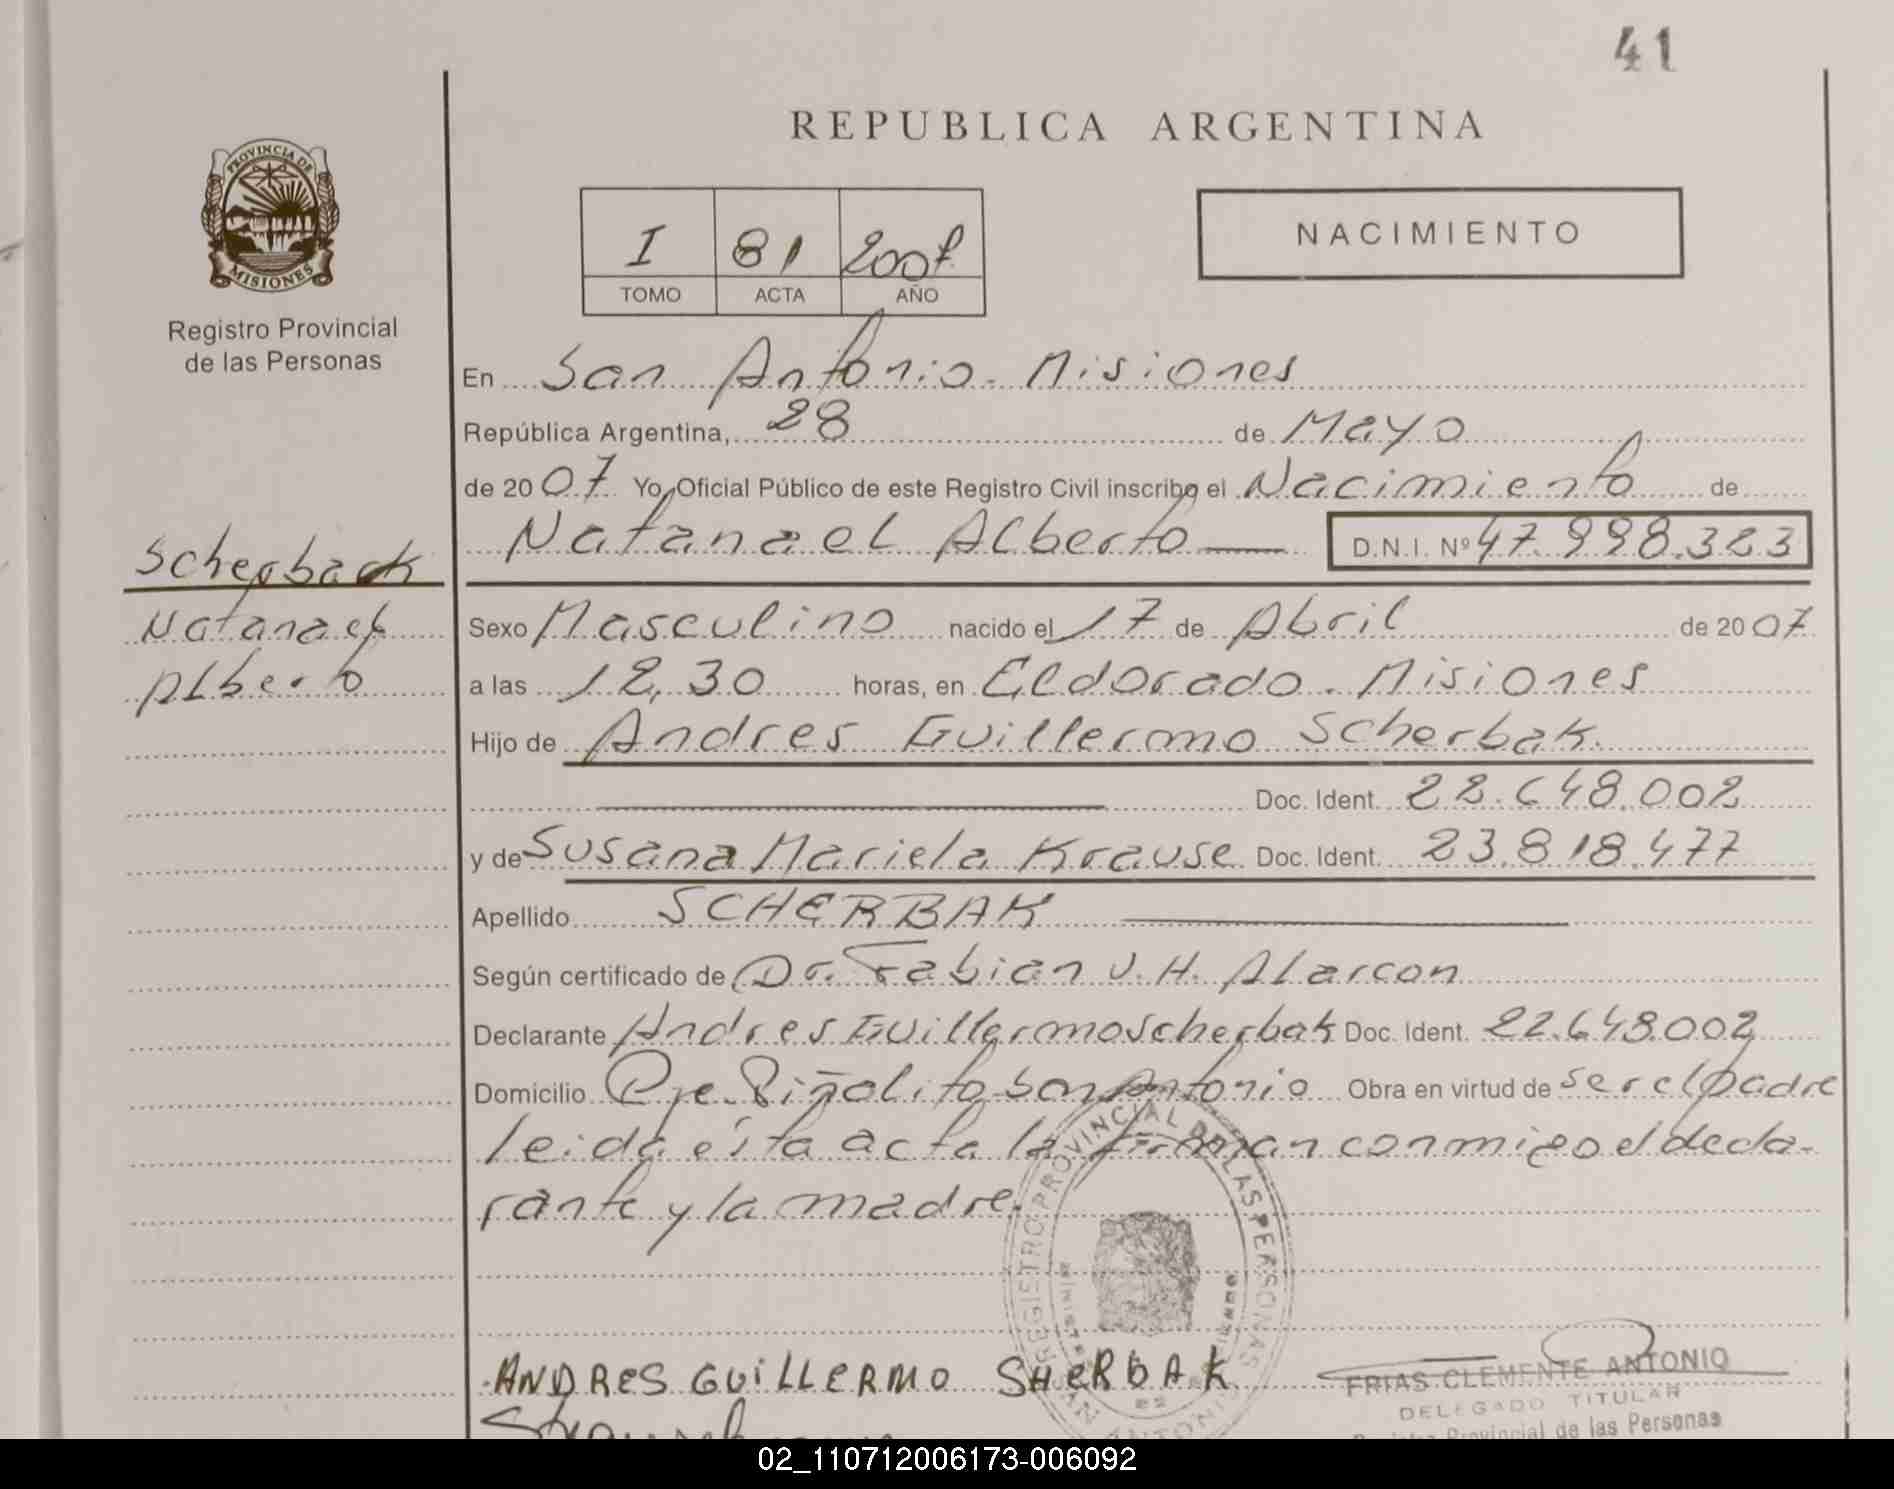 41
REPUBLICA ARGENTINA
PROVINCIA DE
MISIONES
Registro Provincial
de las Personas
I 81 2007
TOMO ACTA AÑO
NACIMIENTO
En San Antonio. Misiones
República Argentina, 28 de Mayo
de 2007 Yo, Oficial Público de este Registro Civil inscribo el Nacimiento de
Natanael Alberto D.N.I. Nº 47.998.323
Scherback
Natanael
Alberto
Sexo Masculino nacido el 17 de Abril de 2007
a las 12,30 horas, en Eldorado. Misiones
Hijo de Andres Guillermo Scherbak.
Doc. Ident. 22.648.002
y de Susana Mariela Krause Doc. Ident. 23.818.477
Apellido SCHERBAK
Según certificado de Dr. Fabian U. H. Alarcon
Declarante Andres Guillermo Scherbak Doc. Ident. 22.648.002
Domicilio Pje. Piñalito San Antonio Obra en virtud de ser el padre
leida esta acta la firman conmigo el decla-
rante y la madre.
REGISTRO PROVINCIAL DE LAS PERSONAS
SAN ANTONIO
ANDRES GUiLLERMO SHERBAK
FRIAS CLEMENTE ANTONIO
DELEGADO TITULAR
Registro Provincial de las Personas
02_110712006173-006092